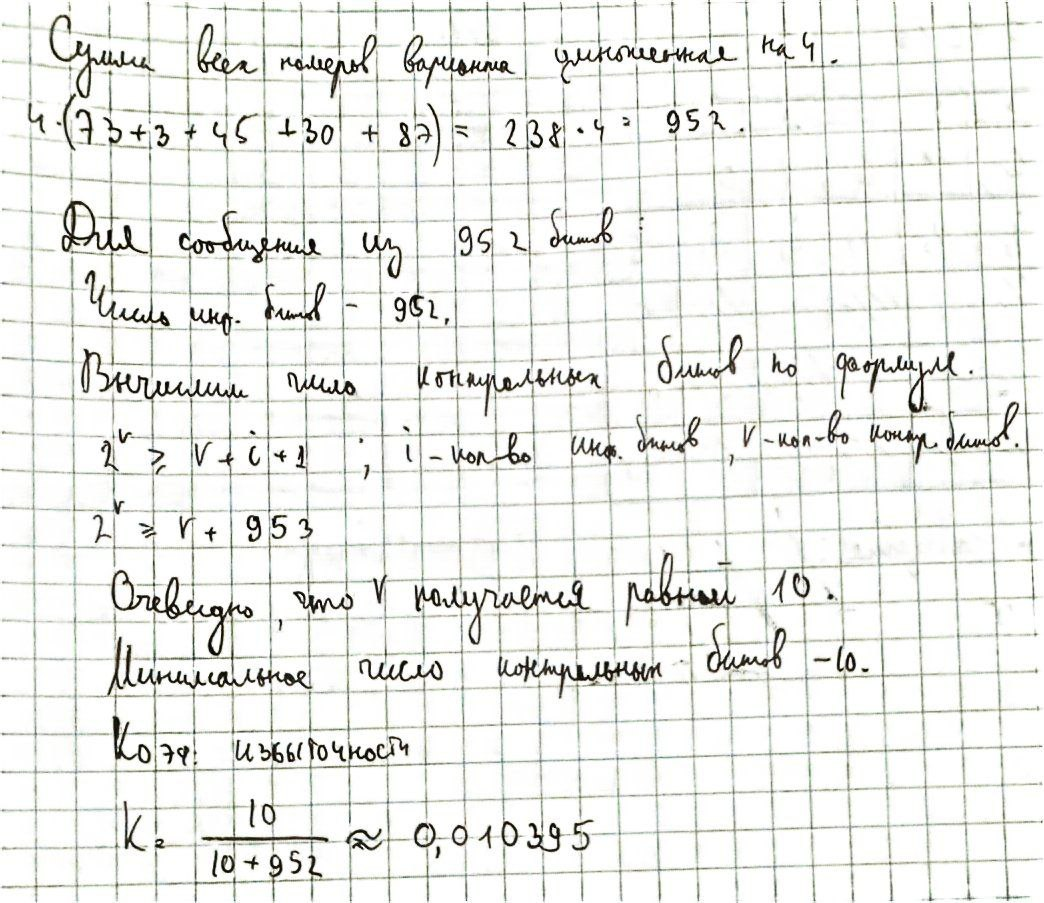 Сумма всех номеров варианта умноженная на 4.
4·(73+3+45+30+87) = 238·4 = 952.
Для сообщения из 952 битов:
Число инф. битов - 952.
Вычислим число контрольных битов по формуле.
2^r ≥ r+i+1 ; i-кол-во инф. битов, r-кол-во контр. битов.
2^r ≥ r + 953
Очевидно, что r получается равный 10.
Минимальное число контрольных битов -10.
Коэф. избыточности
K = 10/(10+952) ≈ 0,010395